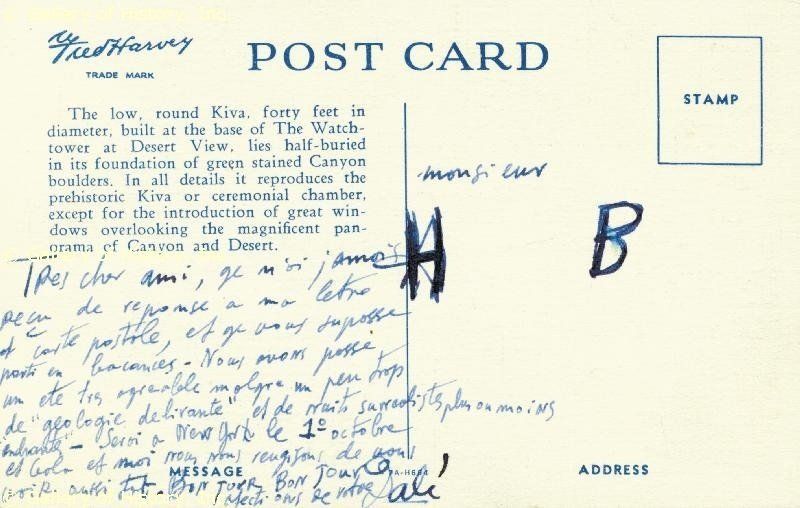 © Gallery of History, Inc.
Fred Harvey
TRADE MARK
POST CARD
STAMP
The low, round Kiva, forty feet in
diameter, built at the base of The Watch-
tower at Desert View, lies half-buried
in its foundation of green stained Canyon
boulders. In all details it reproduces the
prehistoric Kiva or ceremonial chamber,
except for the introduction of great win-
dows overlooking the magnificent pan-
orama of Canyon and Desert.
monsieur
H B
Tres cher ami, ge n'ai jamais
reçu de reponse a ma letre
et carte postale, et ge vous suposse
parti en bacances - Nous avons passé
un ete tres agreable malgre un peu trop
de "geologie delirante" et de nuits surrealistes plus ou moins
- Serai a New York le 1º octobre
et Gala et moi nous nous reugisons de vous
voir aussi tot - BON JOUR BON JOUR
afections de votre Dali
MESSAGE
ADDRESS